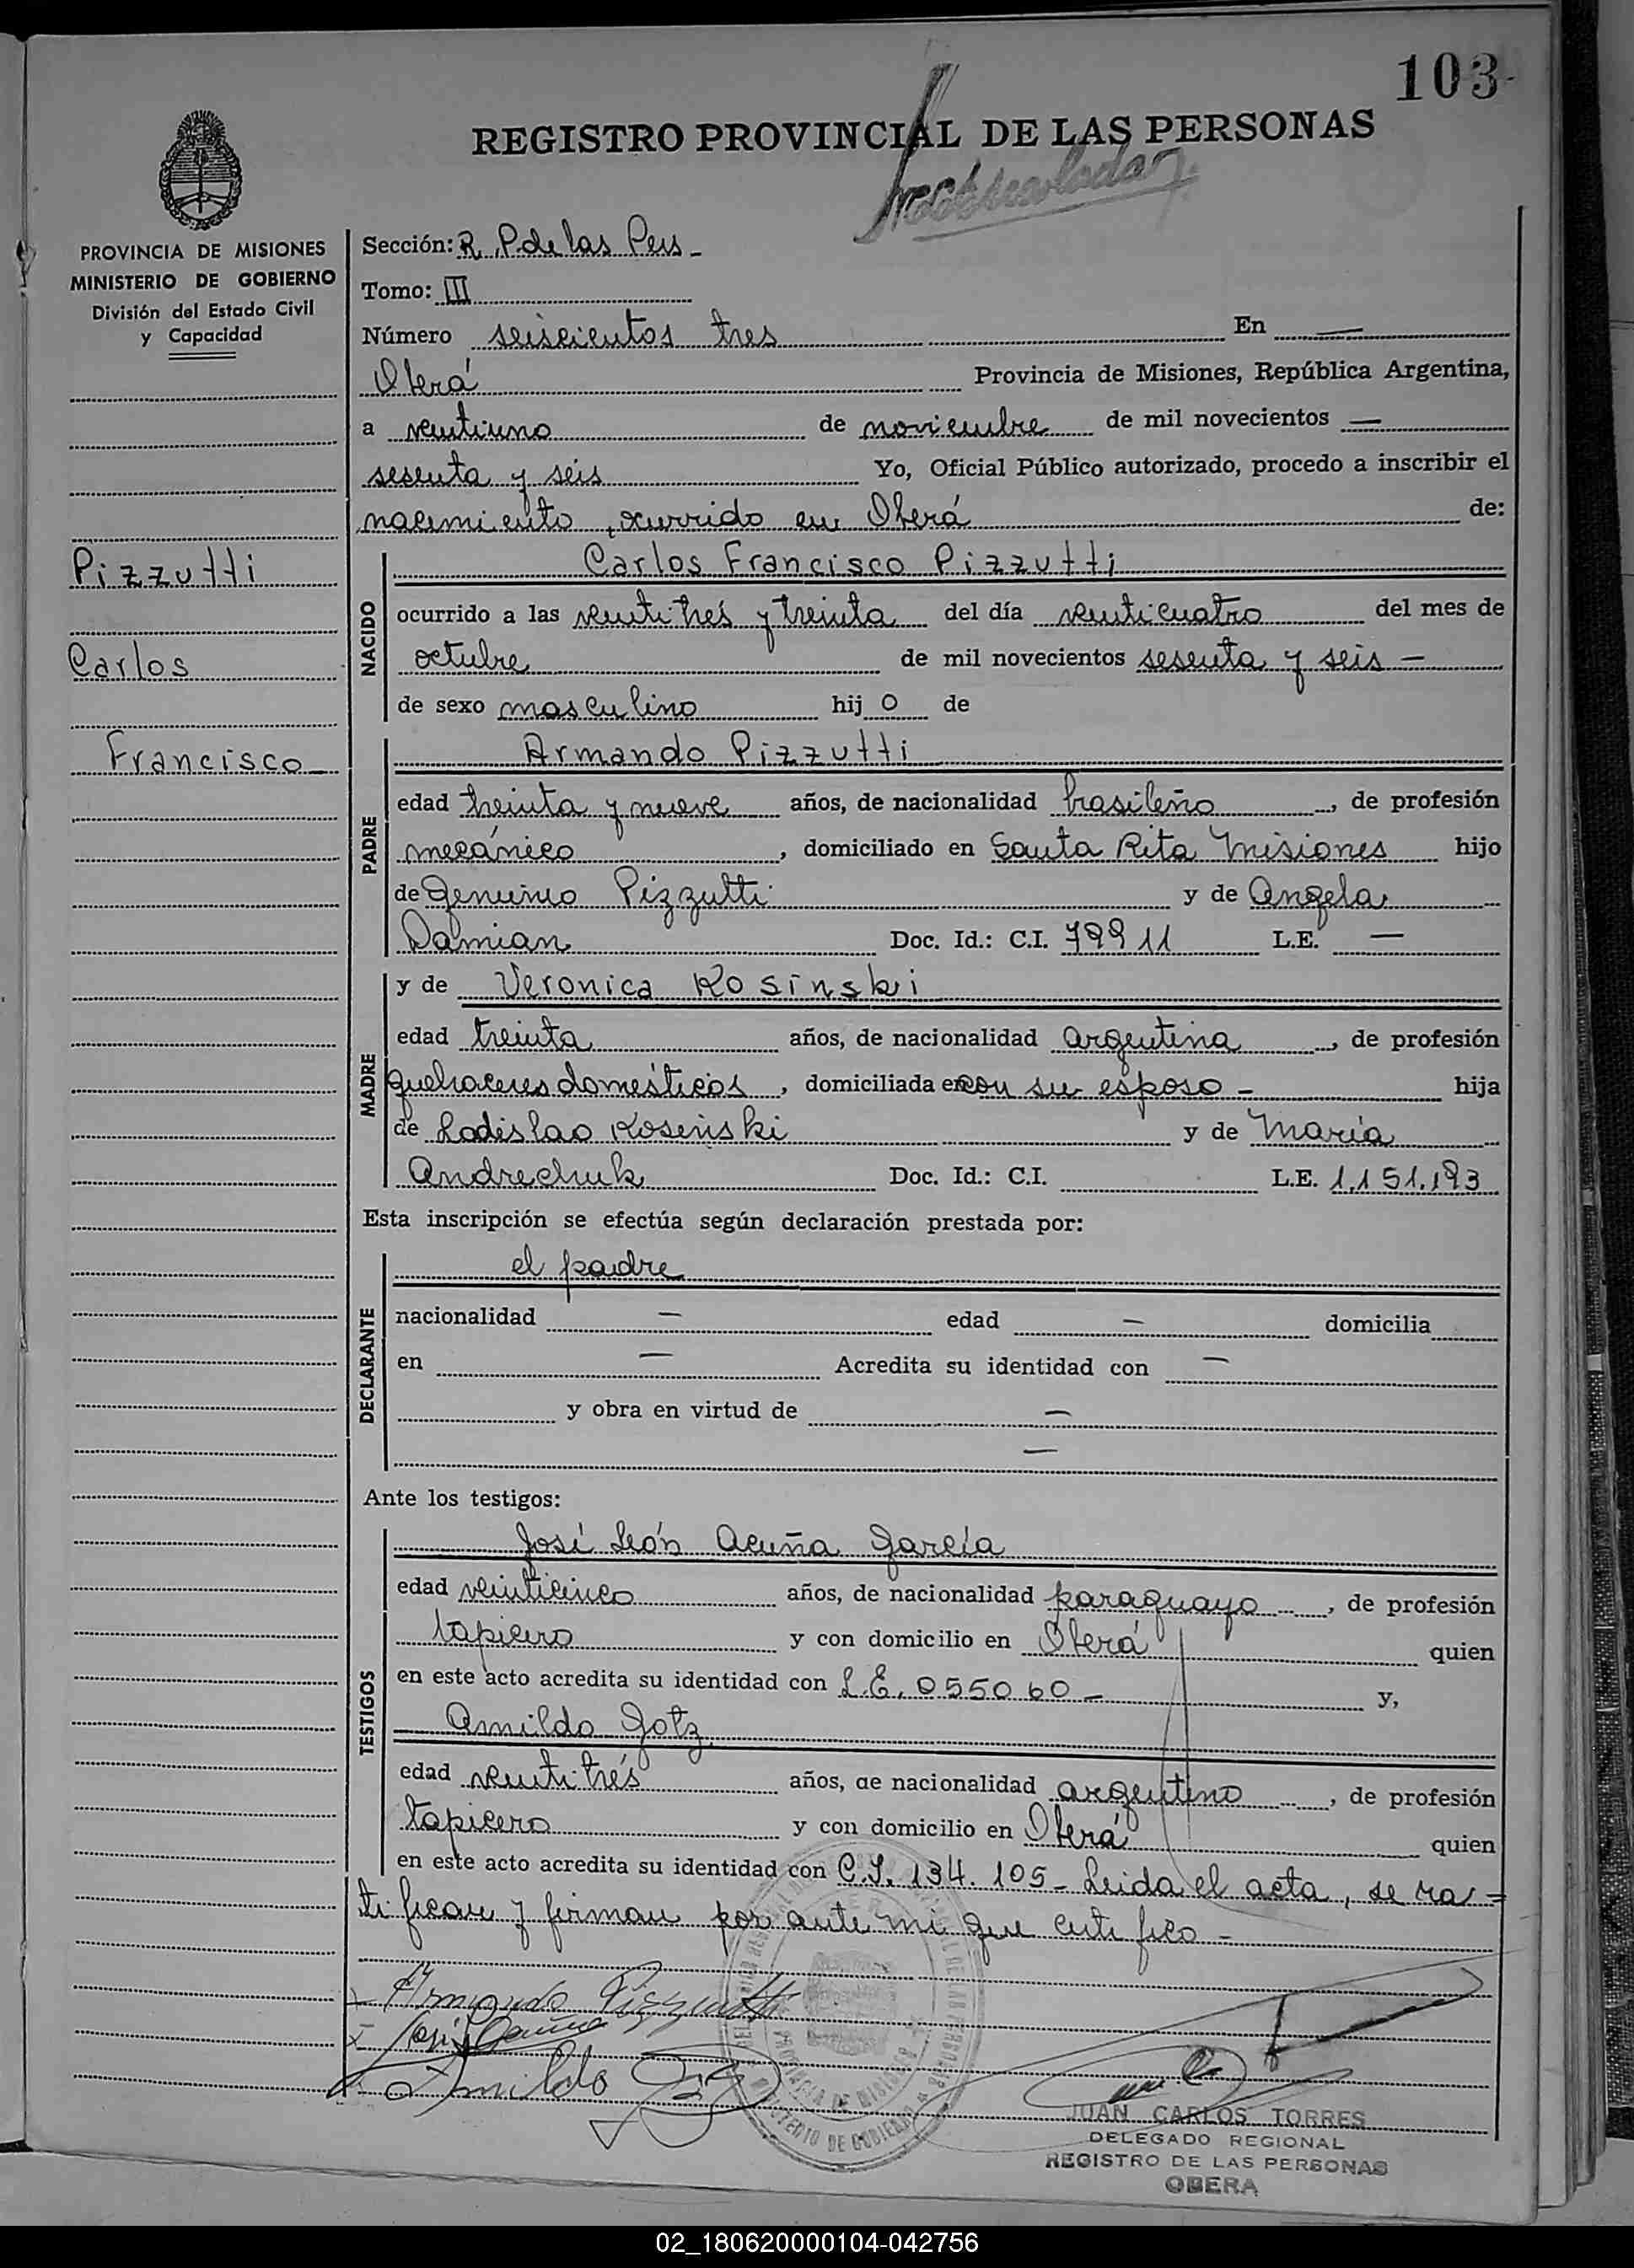 103
REGISTRO PROVINCIAL DE LAS PERSONAS
PROVINCIA DE MISIONES
MINISTERIO DE GOBIERNO
División del Estado Civil
y Capacidad
Pizzutti
Carlos
Francisco
Sección: R. P. de las Pers -
Tomo: III
Número seiscientos tres En —
Oberá Provincia de Misiones, República Argentina,
a veintiuno de noviembre de mil novecientos —
sesenta y seis Yo, Oficial Público autorizado, procedo a inscribir el
nacimiento, ocurrido en Oberá de:
NACIDO
Carlos Francisco Pizzutti
ocurrido a las veintitrés y treinta del día veinticuatro del mes de
octubre de mil novecientos sesenta y seis —
de sexo masculino hijo de
PADRE
Armando Pizzutti
edad treinta y nueve años, de nacionalidad brasileño, de profesión
mecánico, domiciliado en Santa Rita Misiones hijo
de Genuino Pizzutti y de Angela
Damian Doc. Id.: C.I. 79911 L.E. —
MADRE
y de Veronica Kosinski
edad treinta años, de nacionalidad argentina, de profesión
quehaceres domésticos, domiciliada en con su esposo - hija
de Ladislao Kosinski y de María
Andrechuk Doc. Id.: C.I. L.E. 1.151.193
Esta inscripción se efectúa según declaración prestada por:
DECLARANTE
el padre
nacionalidad — edad — domicilia
en — Acredita su identidad con —
y obra en virtud de —
—
Ante los testigos:
TESTIGOS
José León Acuña García
edad veinticinco años, de nacionalidad paraguayo, de profesión
tapicero y con domicilio en Oberá quien
en este acto acredita su identidad con L.E. 055060 - y,
Amildo Gotz
edad veintitrés años, de nacionalidad argentino, de profesión
tapicero y con domicilio en Oberá quien
en este acto acredita su identidad con C.I. 134.105 - Leida el acta, se ra=
tifican y firman por ante mi que certifico -
Armando Pizzutti
Amildo
PROVINCIA DE MISIONES
MINISTERIO DE GOBIERNO
JUAN CARLOS TORRES
DELEGADO REGIONAL
REGISTRO DE LAS PERSONAS
OBERA
02_180620000104-042756